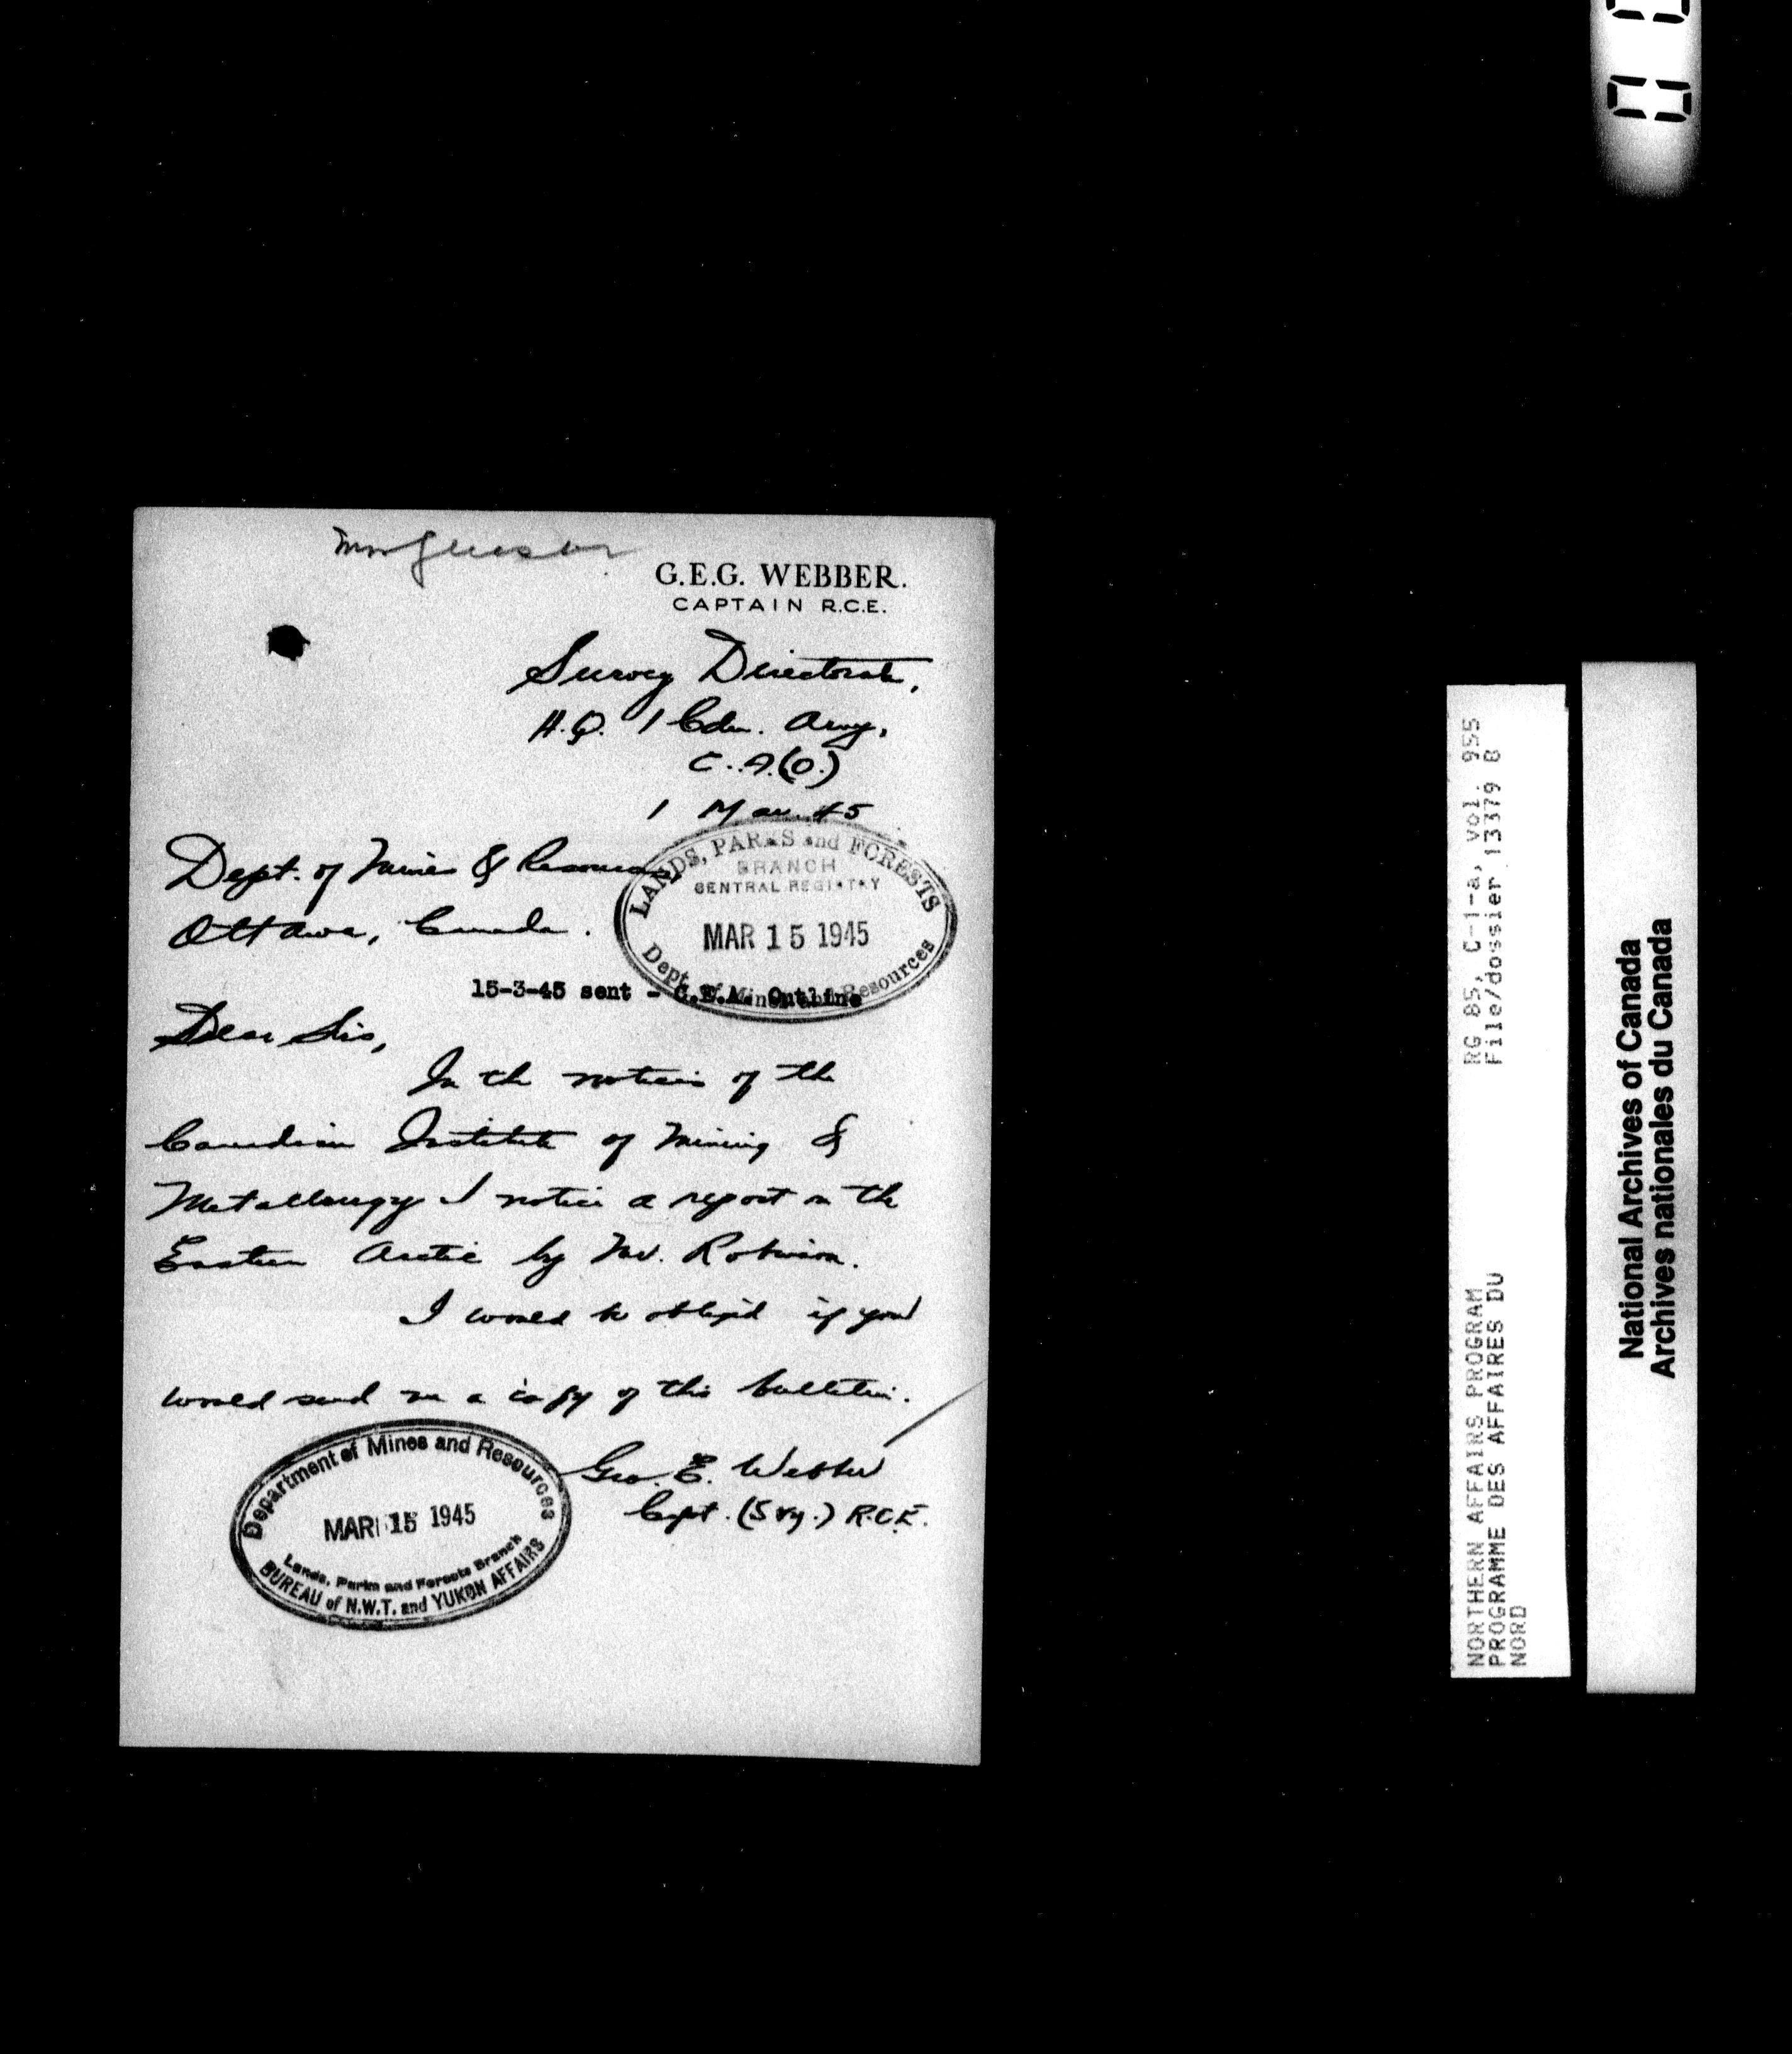 G.E.G. WEBBER.
CAPTAIN R.C.E.
Survey Directorate,
H.Q. 1 Cdn. Army,
C.A.(O.)
1 Mar. 45
Dept. of Mines & Resources,
Ottawa, Canada.
LANDS, PARKS and FORESTS
BRANCH
CENTRAL REGISTRY
MAR 15 1945
Dept. of Mines and Resources
15-3-45 sent - C.E.A. Outline
Dear Sirs,
In the notices of the
Canadian Institute of Mining &
Metallurgy I notice a report on the
Eastern Arctic by Mr. Robinson.
I would be obliged if you
would send me a copy of this bulletin.
Geo. E. Webber
Capt. (Svy.) R.C.E.
Department of Mines and Resources
MAR 15 1945
Lands, Parks and Forests Branch
BUREAU of N.W.T. and YUKON AFFAIRS
RG 85, C-1-a, vol. 955
File/dossier 13379 B
NORTHERN AFFAIRS PROGRAM
PROGRAMME DES AFFAIRES DU
NORD
National Archives of Canada
Archives nationales du Canada